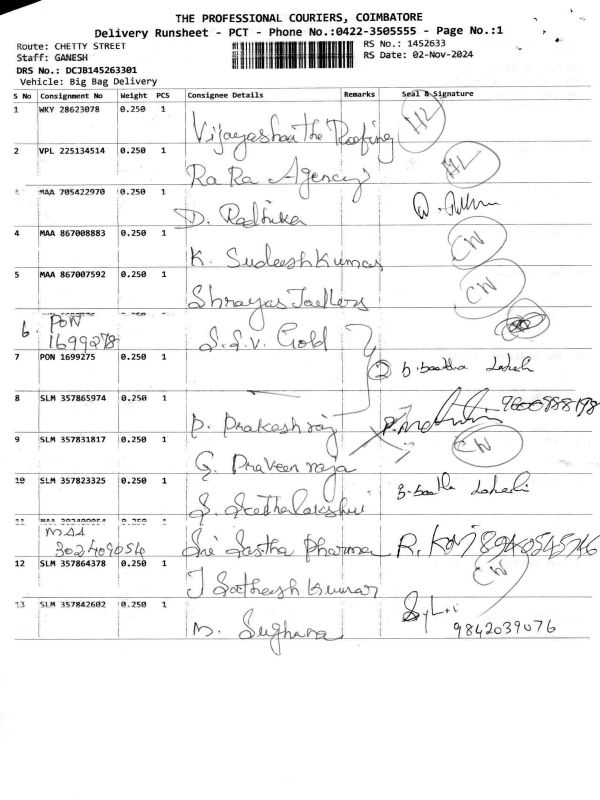 THE PROFESSIONAL COURIERS, COIMBATORE
Delivery Runsheet - PCT - Phone No.:0422-3505555 - Page No.:1
Route: CHETTY STREET
RS No.: 1452633
Staff: GANESH
RS Date: 02-Nov-2024
DRS No.: DCJB145263301
Vehicle: Big Bag Delivery
S No Consignment No Weight PCS Consignee Details Remarks Seal & Signature
1 WKY 28623078 0.250 1
HL
Vijayashaa the Roofing
2 VPL 225134514 0.250 1
HL
Ra Ra Agency
MAA 705422970 0.250 1
D. Radhika
4 MAA 867008883 0.250 1
CW
K. Sudeesh Kumar
5 MAA 867007592 0.250 1
CW
Shrayas
6. PON
1699278 S.S.V. Gold
7 PON 1699275 0.250 1
8 SLM 357865974 0.250 1
P. Prakash raj
9 SLM 357831817 0.250 1
CW
G. Praveen raja
10 SLM 357823325 0.250 1
S.
11 MAA 302409054 0.250 1
MAA
302409054 Sri Sastha Pharma R.
12 SLM 357864378 0.250 1
CW
J Satheesh kumar
13 SLM 357842602 0.250 1
M.
9842039076